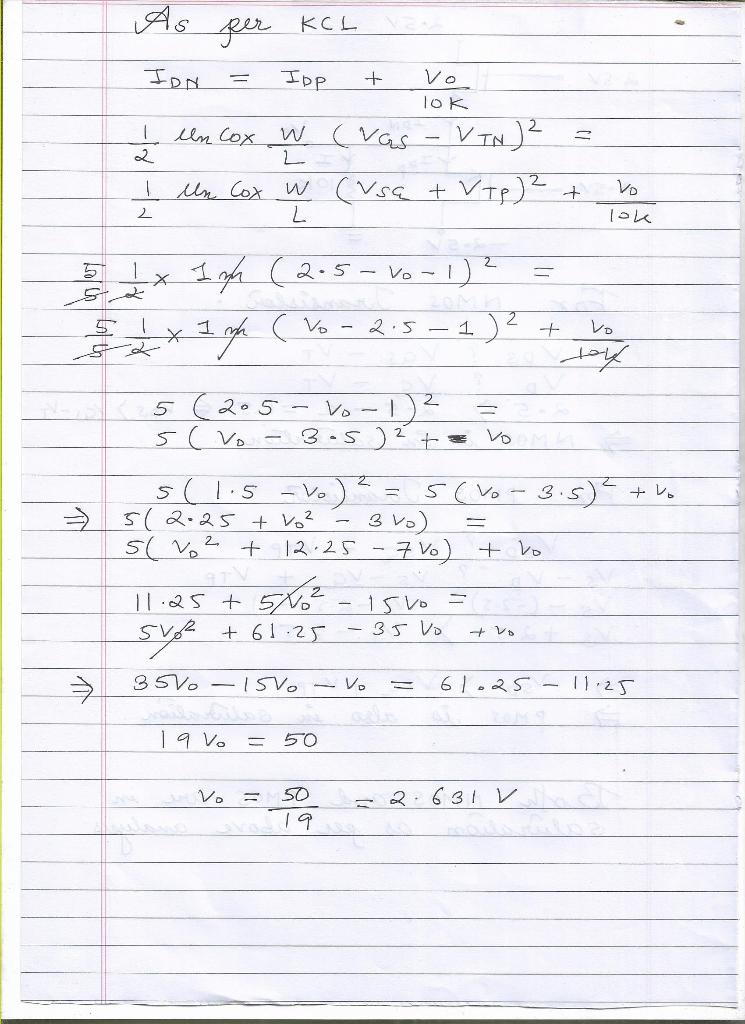 As per KCL
I_DN = I_DP + Vo/10K
1/2 Un Cox W/L (VGS - VTN)² =
1/2 Un Cox W/L (VSG + VTP)² + Vo/10k
5/5 1/2 × 1m (2.5 - Vo - 1)² =
5/5 1/2 × 1m (Vo - 2.5 - 1)² + Vo/10k
5 (2.5 - Vo - 1)² =
5 (Vo - 3.5)² + Vo
5 (1.5 - Vo)² = 5 (Vo - 3.5)² + Vo
⇒ 5(2.25 + Vo² - 3Vo) =
5(Vo² + 12.25 - 7Vo) + Vo
11.25 + 5Vo² - 15Vo =
5Vo² + 61.25 - 35Vo + Vo
⇒ 35Vo - 15Vo - Vo = 61.25 - 11.25
19Vo = 50
Vo = 50/19 = 2.631 V